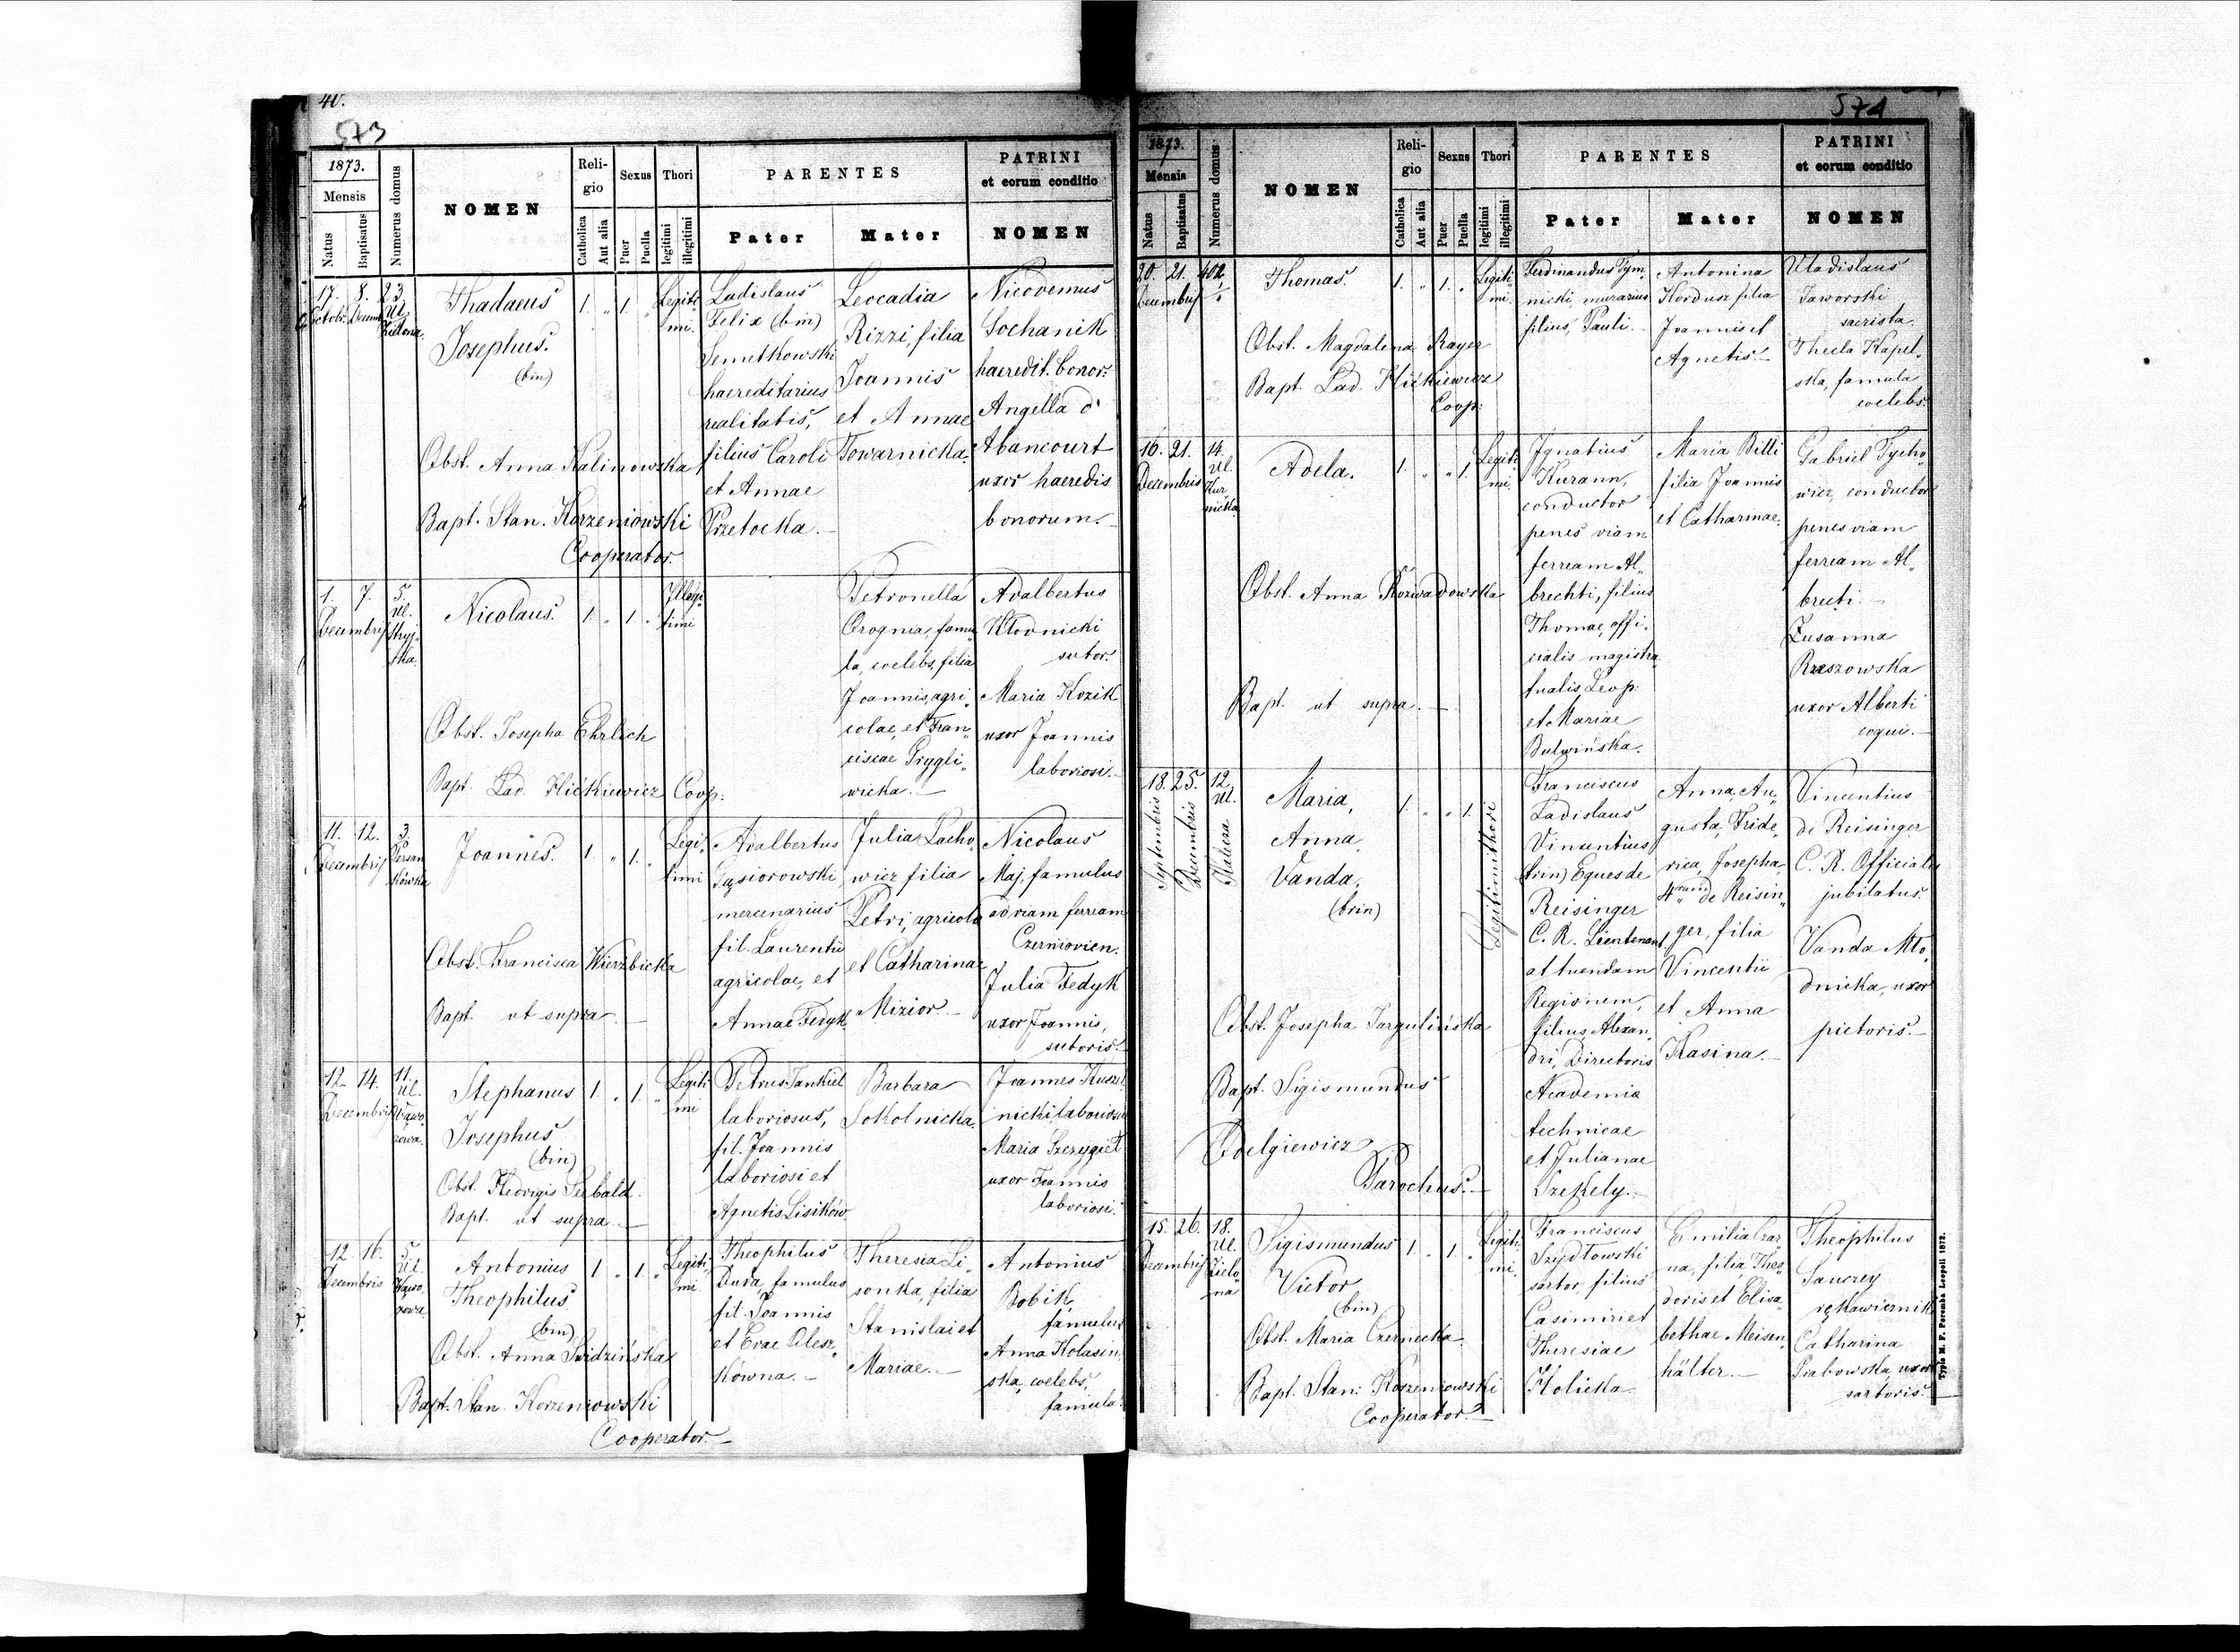 40.
573
1873.
Mensis
Natus
Baptisatus
Numerus domus
NOMEN
Reli-
gio
Catholica
Aut alia
Sexus
Puer
Puella
Thori
legitimi
illegitimi
PARENTES
Pater
Mater
PATRINI
et eorum conditio
NOMEN
17. 8. 23
Octobr. Decemb Ul.
Zielona
Thadaeus
Josephus.
(bin)
1. „ 1. „
Legiti
mi.
Obst. Anna Kalinowska
Bapt. Stan. Korzeniowski
Cooperator.
Ladislaus
Felix (bin)
Semetkowski
haereditarius
realitatis,
filius Caroli
et Annae
Przetocka.
Leocadia
Rizzi, filia
Joannis
et Annae
Towarnicka.
Nicodemus
Sochanik
haeredit. bonor:
Angella d'
Abancourt
uxor haeredis
bonorum.
1. 7. 5.
Decembris Ul.
Stryj-
ska
Nicolaus.
1. „ 1. „
Illegi
timi
Obst. Josepha Ehrlich
Bapt. Lad. Hićkiewicz Coop:
Petronella
Orognia, famu
la, coelebs, filia
Joannis, agri
colae, et Fran
ciscae Prygli
wicka.
Adalbertus
Kłodnicki
sutor.
Maria Kozik
uxor Joannis
laboriosi.
11. 12. 3.
Decembris Persan
kówka
Joannes.
1. „ 1. „
Legi
timi
Obst. Francisca Wierzbicka
Bapt. ut supra.
Adalbertus
Gąsiorowski
mercenarius
fil. Laurentii
agricolae, et
Annae Fedyk
Julia Lacho
wicz filia
Petri, agricola
et Catharinae
Mizior.
Nicolaus
Maj, famulus
ad viam ferream
Czerniovien.
Julia Fedyk
uxor Joannis,
sutoris.
12. 14. 11.
Decembris Ul.
Wąwo
zowa.
Stephanus
Josephus
(bin)
1. „ 1. „
Legiti
mi
Obst. Hedvigis Seebald.
Bapt. ut supra.
Petrus Jankiel
laboriosus,
fil. Joannis
laboriosi et
Agnetis Lisików
Barbara
Sokolnicka.
Joannes Kusze
nicki, laboriosus
Maria Szczygieł
uxor Joannis
laboriosi.
12. 16. 5.
Decembris Ul.
Wąwo
zowa
Antonius
Theophilus
(bin)
1. „ 1. „
Legiti
mi.
Obst. Anna Swidzińska
Bapt. Stan. Korzeniowski
Cooperator.
Theophilus
Duda, famulus
fil. Joannis
et Evae Olesz
kówna.
Theresia Li
sonka, filia
Stanislai et
Mariae.
Antonius
Bobik,
famulus
Anna Kolasin
ska, coelebs,
famula.
574
1873.
Mensis
Natus
Baptisatus
Numerus domus
NOMEN
Reli-
gio
Catholica
Aut alia
Sexus
Puer
Puella
Thori
legitimi
illegitimi
PARENTES
Pater
Mater
PATRINI
et eorum conditio
NOMEN
20. 21. 402
Decembris
Thomas.
1. „ 1. „
Legiti
mi.
Obst. Magdalena Rayer
Bapt. Lad. Hićkiewicz
Coop:
Ferdinandus Tym
nicki, murarius
filius, Pauli.
Antonina
Kordusz filia
Joannis et
Agnetis.
Vladislaus
Jaworski
sacrista.
Thecla Kapel
ska, famula
coelebs.
16. 21. 14.
Decembris Ul.
Kur
nicka
Adela.
1. „ „ 1.
Legiti
mi.
Obst. Anna Rozwadowska
Bapt. ut supra.
Ignatius
Kurann,
conductor
penes viam
ferream Al
brechti, filius
Thomae, offi
cialis magistra
tualis Leop:
et Mariae
Bulwińska.
Maria Billi
filia Joannis
et Catharinae.
Gabriel Tycho
wicz, conductor
penes viam
ferream Al
brecti.
Zusanna
Rzeszowska
uxor Alberti
coqui.
18. 25. 12.
Septembris Decembris Ul.
Kalecza
Maria,
Anna,
Vanda,
(trin)
1. „ „ 1.
Legitimi thori
Obst. Josepha Targulińska
Bapt. Sigismundus
Odelgiewicz
Parochus.
Franciscus
Ladislaus
Vincentius
(trin) Eques de
Reisinger
C. R. Lieutenant
at tuendam
Regionem,
filius Alexan
dri, Directoris
Academia
technicae
et Julianae
Szekely.
Anna, Au
gusta, Fride
rica, Josepha,
4num de Reisin
ger, filia
Vincentii
et Anna
Kasina.
Vincentius
de Reisinger
C. R. Officialis
jubilatus.
Vanda Mło
dnicka, uxor
pictoris.
15. 26. 18.
Decembris Ul.
Zielo
na
Sigismundus
Victor
(bin)
1. „ 1. „
Legiti
mi.
Obst. Maria Czernecka.
Bapt. Stan: Korzeniowski
Cooperator.
Franciscus
Szydłowski
sartor, filius
Casimiri et
Theresiae
Holicka.
Emilia Czar
na, filia Theo
doris et Elisa
bethae Meisen
hälter.
Theophilus
Sauczey
rękawicznik
Catharina
Grabowska, uxor
sartoris.
Typis M. F. Poremba Leopoli 1872.